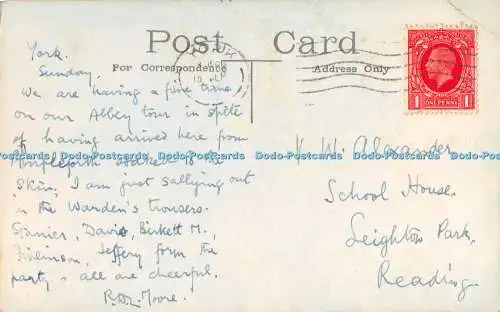 Post Card
For Correspondence
Address Only
ONE PENNY
1 1
York.
Sunday.
We are having a fine time
on our Abbey tour in spite
of having arrived here from
Ampleforth soaked to the
skin, I am just sallying out
in the Warden's trousers.
Stanier, Davis, Birkett M.,
Tomlinson, Jeffery form the
party & all are cheerful.
Moore.
W. Alexander
School House.
Leighton Park,
Reading.
Dodo-Postcards Dodo-Postcards Dodo-Postcards Dodo-Postcards Dodo-Postcards